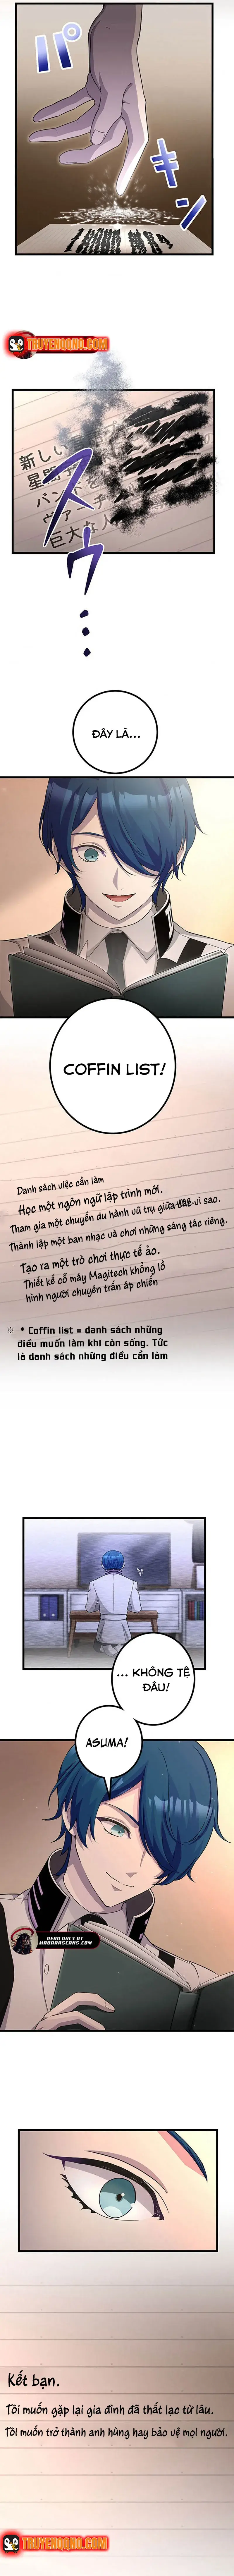 パキン
TRUYENGQNO.COM
新しい
星間
バンドを
ヴァーチ
巨大な人
スゥ...
ĐÂY LÀ...
COFFIN LIST!
Danh sách việc cần làm
Học một ngôn ngữ lập trình mới.
Tham gia một chuyến du hành vũ trụ giữa các vì sao.
Thành lập một ban nhạc và chơi những sáng tác riêng.
Tạo ra một trò chơi thực tế ảo.
Thiết kế cỗ máy Magitech khổng lồ
hình người chuyên trấn áp chiến
※ * Coffin list = danh sách những
điều muốn làm khi còn sống. Tức
là danh sách những điều cần làm
... KHÔNG TỆ
ĐÂU!
ASUMA!
READ ONLY AT
MADARASCANS.COM
Kết bạn.
Tôi muốn gặp lại gia đình đã thất lạc từ lâu.
Tôi muốn trở thành anh hùng hay bảo vệ mọi người.
TRUYENGQNO.COM